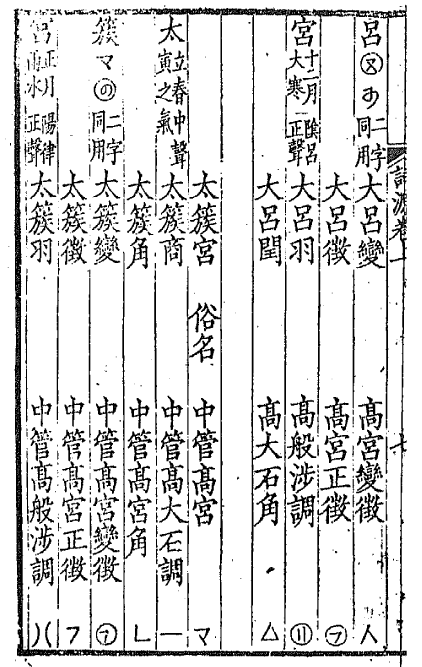 詞源卷上 七
呂 二字同用 大呂變 高宮變徵 人
大呂徵 高宮正徵 ㋐
宮 十二月 陰呂 大寒 正聲 大呂羽 高般涉調 ⑪
大呂閏 高大石角 △
太簇宮 俗名 中管高宮 マ
太 立春中聲 寅之氣 太簇商 中管高大石調 一
太簇角 中管高宮角 ㄴ
簇 マ 二字同用 太簇變 中管高宮變徵
太簇徵 中管高宮正徵 フ
宮 正月 陽律 雨水 正聲 太簇羽 中管高般涉調 )(